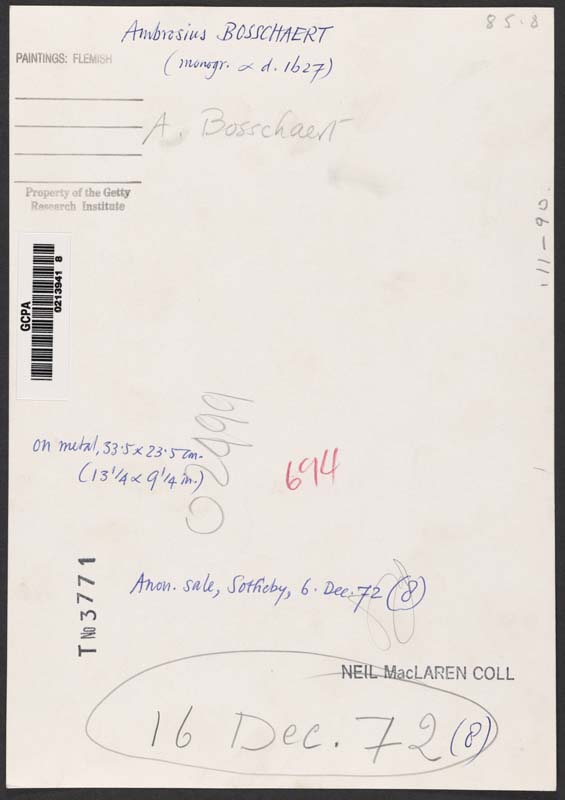 85.8
Ambrosius BOSSCHAERT
(monogr. & d. 1627)
PAINTINGS: FLEMISH
A. Bosschaert
Property of the Getty
Research Institute
111-90.
GCPA
0213941 8
on metal, 33.5 x 23.5 cm.
(13 1/4 x 9 1/4 in.)
02499
694
T No 3771
Anon. sale, Sotheby, 6. Dec. 72 (8)
NEIL MacLAREN COLL
16 Dec. 72 (8)